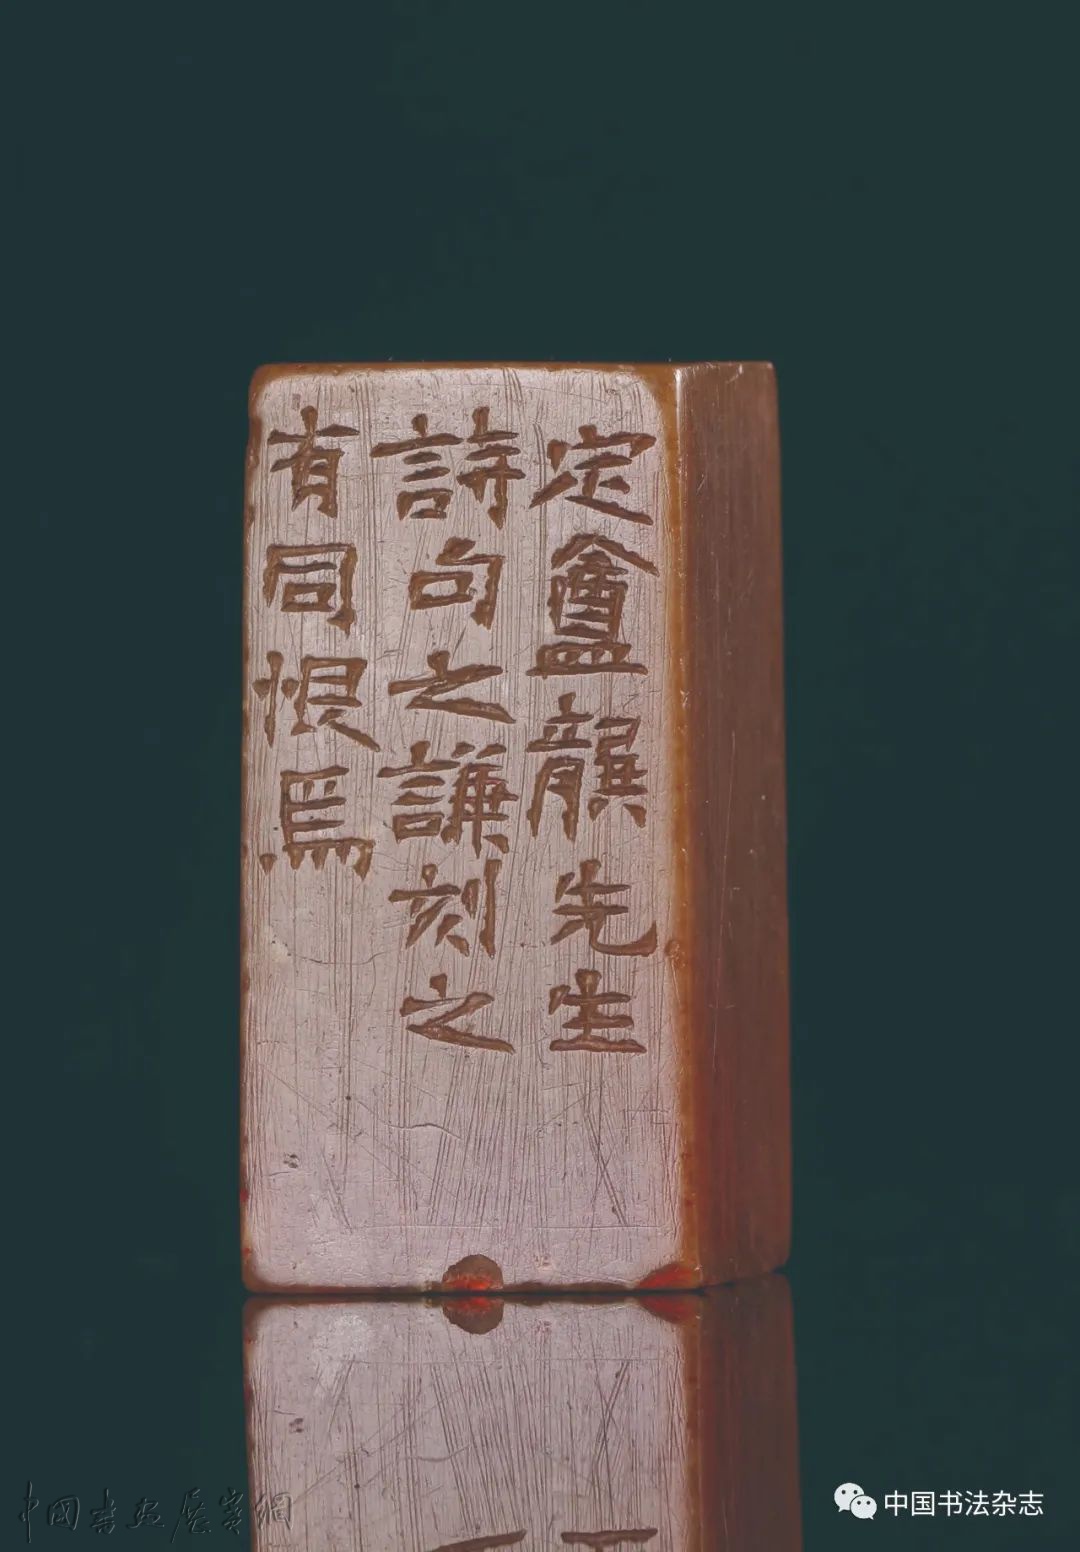 定盦龔先生
詩句之謙刻之
有同恨焉
中國書画展賽網
中国书法杂志